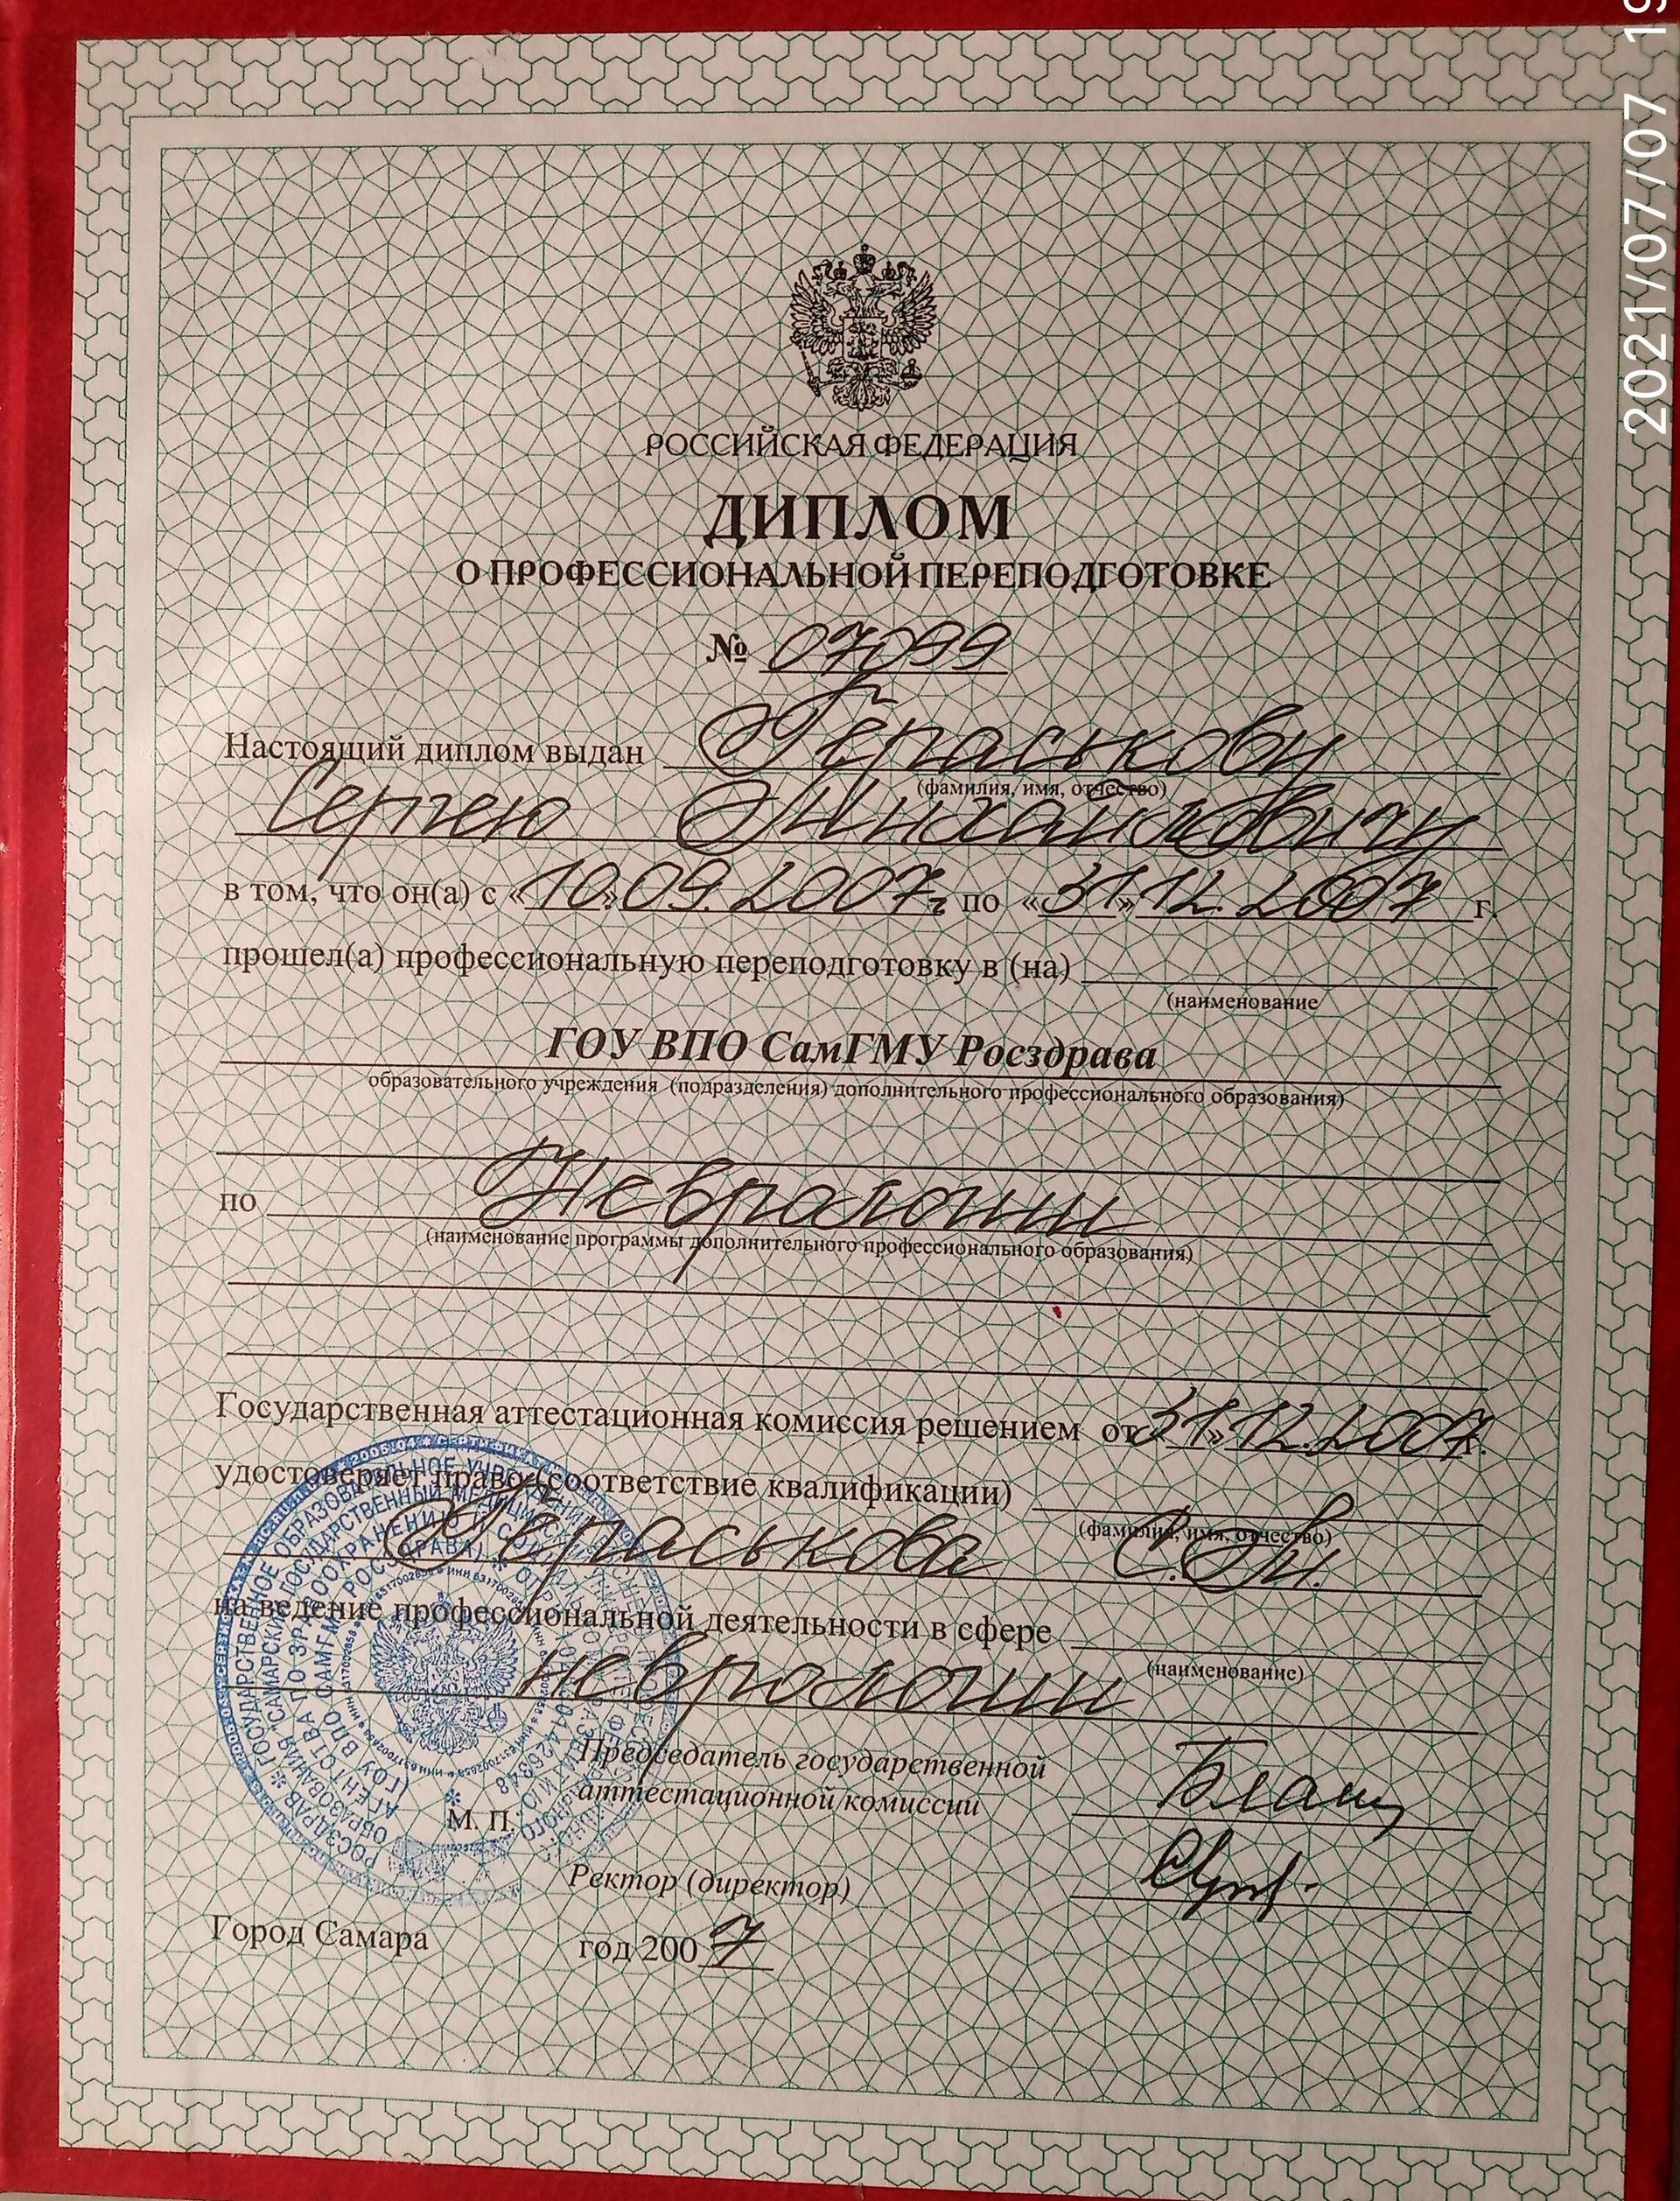 2021/07/07 19
РОССИЙСКАЯ ФЕДЕРАЦИЯ
ДИПЛОМ
О ПРОФЕССИОНАЛЬНОЙ ПЕРЕПОДГОТОВКЕ
№ 07099
Настоящий диплом выдан Гераськову
(фамилия, имя, отчество)
Сергею Михайловичу
в том, что он(а) с «10» 09. 2007г. по «31» 12. 2007 г.
прошел(а) профессиональную переподготовку в (на)
(наименование
ГОУ ВПО СамГМУ Росздрава
образовательного учреждения (подразделения) дополнительного профессионального образования)
по Неврологии
(наименование программы дополнительного профессионального образования)
Государственная аттестационная комиссия решением от «31» 12. 2007г.
удостоверяет право (соответствие квалификации)
(фамилия, имя, отчество)
Гераськова С.М.
на ведение профессиональной деятельности в сфере
(наименование)
неврологии
Председатель государственной
аттестационной комиссии
М. П.
Ректор (директор)
Город Самара год 2007